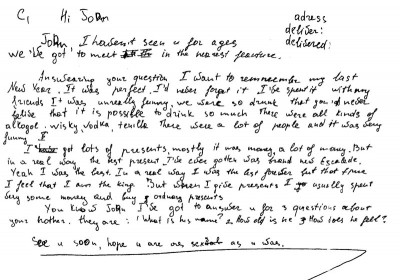 C1 Hi John
adress
deliver:
delivered:
John, I haven't seen u for ages
we 've got to meet in the nearest feauture.
Answearing your question I want to remneember my last
New Year. It was perfect. I'd never forget it. I've spent it with my
friends It was unreally funny, we were so drunk that you'd never
belive that it is possible to drink so much There were all kinds of
allogol: wisky, vodka, tequilla There were a lot of people and it was very
funny
I got lots of presents, mostly it was money, a lot of money. But
in a real way the best present I've ever gotten was brand new Escelade.
Yeah I was the best. In a real way I was the best forever but that time
I feel that I am the king. But when I give presents I usually spent
very some money and buy ordinary presents
You know John I've got to answer u for 3 questions about
your bother. they are: 1 What is his name? 2 How old is he 3 How does he feel?
See u soon, hope u are as was.